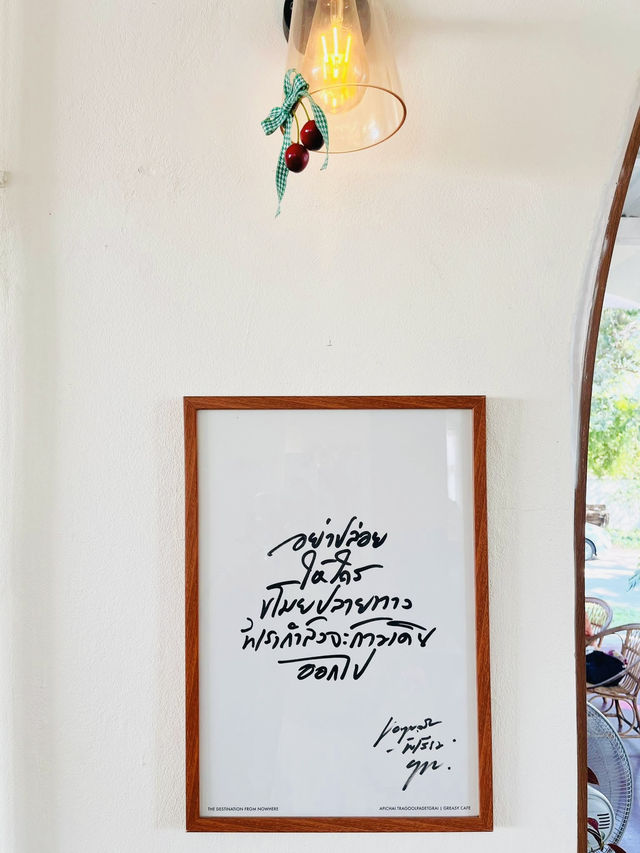 อย่าปล่อย
ให้ใคร
ขโมยปลายทาง
ที่เรากำลังจะก้าวเดิน
ออกไป
THE DESTINATION FROM NOWHERE
APICHAI TRAGOOLPADETGRAI | GREASY CAFE